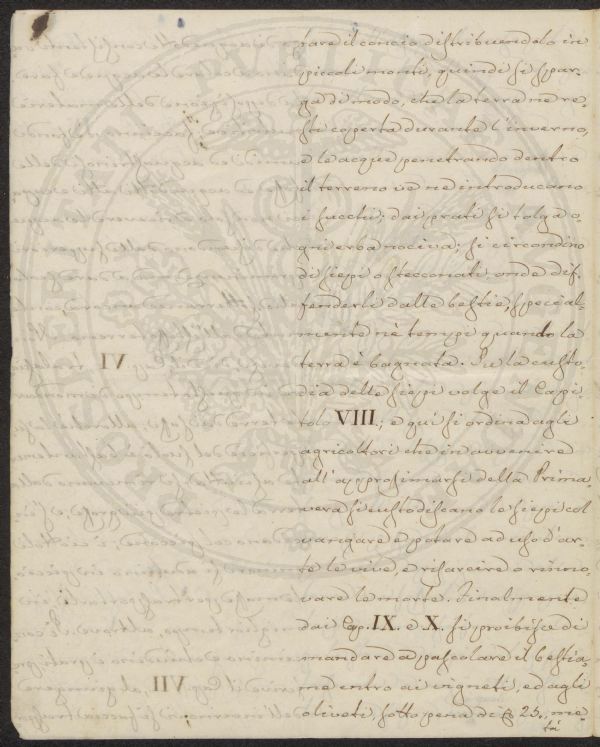 tare il concio distribuendolo in
piccoli monti, quindi si spar-
ga di modo, che la terra ne re-
sti coperta durante l'inverno,
e le acque penetrando dentro
il terreno ve ne introducano
i succhi; dai prati si tolga o-
gni erba nociva; si circondino
di siepi o stecconati onde dif-
fenderli dalle bestie, special-
mente nè tempi quando la
terra è bagnata. Su la custo-
dia delle siepi volge il Capi-
tolo VIII.; e quì si ordina agli
agricoltori che in avvenire
all'approssimarsi della Prima-
vera si custodiscano le siepi col
vangare e potare ad uso d'ar-
te le vive, e risarcire o rinno-
vare le morte. Finalmente
dai Cap. IX. e X. si proibisce di
mandare a pascolare il bestia-
me entro ai vigneti, ed agli
oliveti, sotto pena di 25., me-
tà
VI
VII